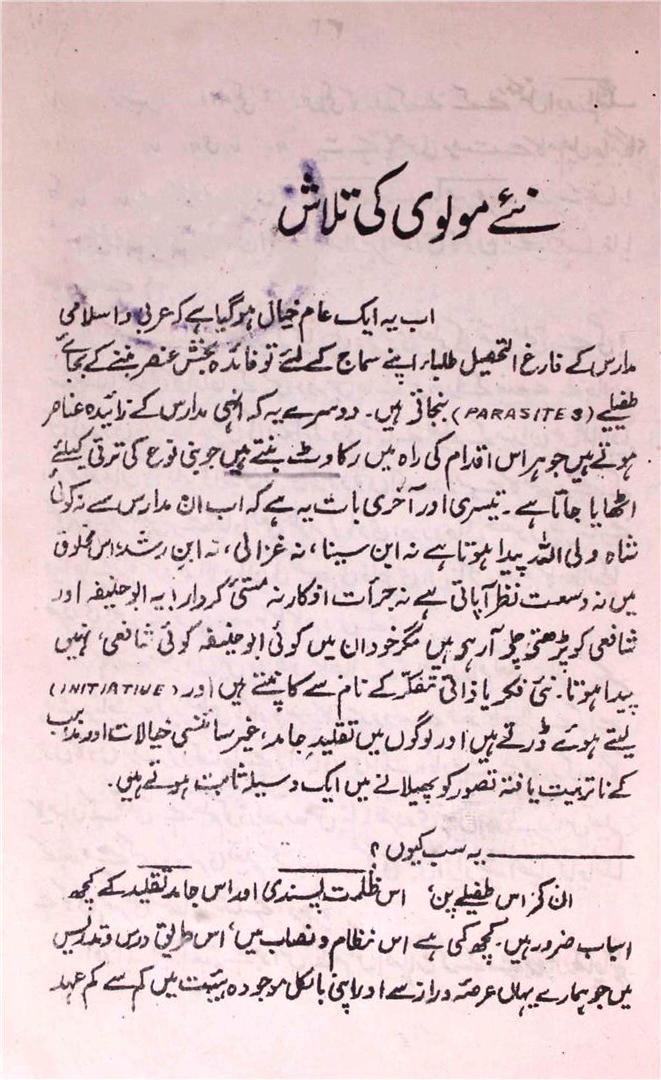 نئے مولوی کی تلاش
اب یہ ایک عام خیال ہوگیا ہے کہ عربی و اسلامی
مدارس کے فارغ التحصیل طلباء اپنے سماج کے لئے تو فائدہ بخش عنصر بننے کے بجائے
طفیلے (PARASITES) بنجاتے ہیں۔ دوسرے یہ کہ انہی مدارس کے زائیدہ عناصر
ہوتے ہیں جو ہر اس اقدام کی راہ میں رکاوٹ بنتے ہیں جو بنی نوع کی ترقی کیلئے
اٹھایا جاتا ہے۔ تیسری اور آخری بات یہ ہے کہ اب ان مدارس سے نہ کوئی
شاہ ولی اللہ پیدا ہوتا ہے نہ ابن سینا، نہ غزالی، نہ ابن رشد! اس مخلوق
میں نہ وسعت نظر آپاتی ہے نہ جرأت افکار نہ کردار! یہ ابو حنیفہ اور
شافعی کو پڑھتے چلے آرہے ہیں مگر خود ان میں کوئی ابو حنیفہ کوئی شافعی، نہیں
پیدا ہوتا۔ نئی فکر یا ذاتی تفکّر کے نام سے کانپتے ہیں اور (INITIATIVE)
لیتے ہوئے ڈرتے ہیں اور لوگوں میں تقلید جامد، غیر سائنسی خیالات اور مذہب
کے ناتربیت یافتہ تصور کو پھیلانے میں ایک وسیلہ ثابت ہوتے ہیں۔
یہ سب کیوں؟
ان کے اس طفیلے پن، اس ظلمت پسندی اور اس جامد تقلید کے کچھ
اسباب ضرور ہیں۔ کچھ کمی ہے اس نظام و نصاب میں، اس طریق درس و تدریس
میں جو ہمارے یہاں عرصۂ دراز سے اور اپنی بالکل موجودہ ہیئت میں کم سے کم عہد